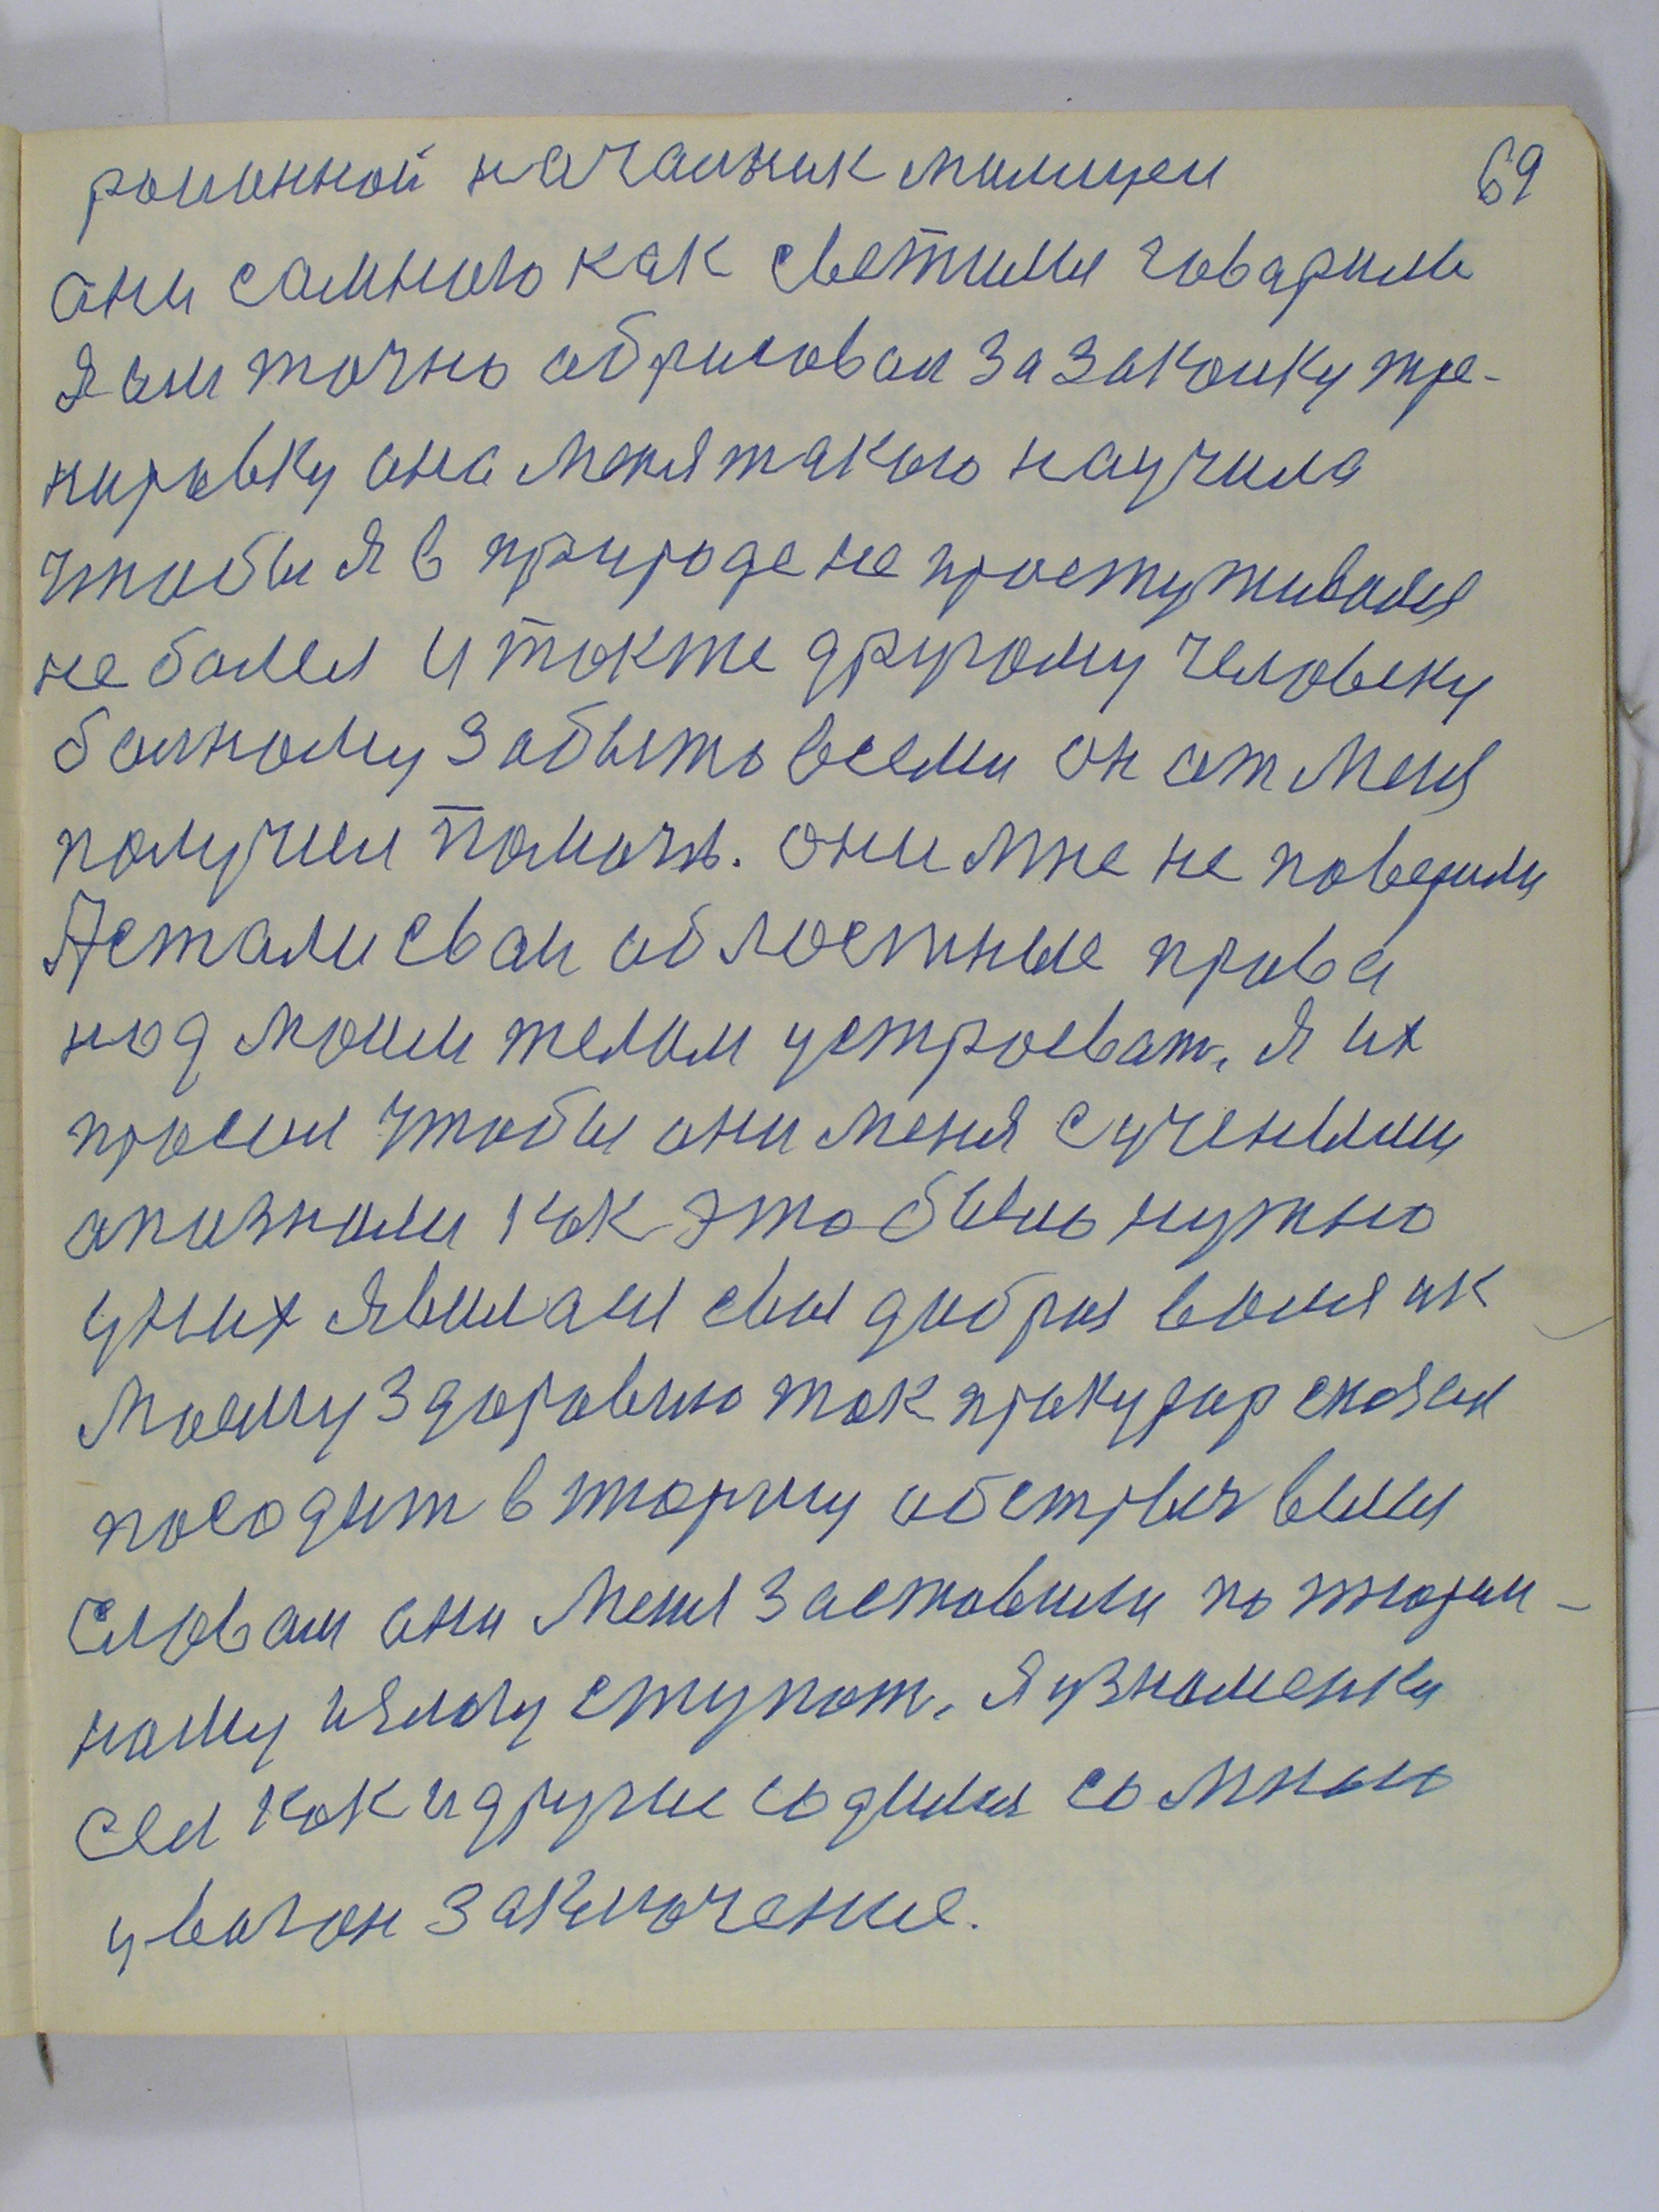 раионной начальник милицеи 69
ани самною как светилы говарили
Я аим точно абрисовал за закалку тре-
нировку ана меня такою научила
чтобы Я в природе не простуживался
не болел и также другому человеку
болному забыто всеми он от меня
получил помочь. они мне не поверили
А стали сваи областные права
над моим телом устроеват, Я их
просил чтобы они меня с учеными
апизнали как это было нужно
у них явилася своя добрая воля ик
моему здоровию так пракурор сказал
посодит в тюрму абстрич выми
словам ани меня заставили по тюрем-
ному ступат, Я узнаменки
сел как и другие содилися со мною
у вагон заключение.